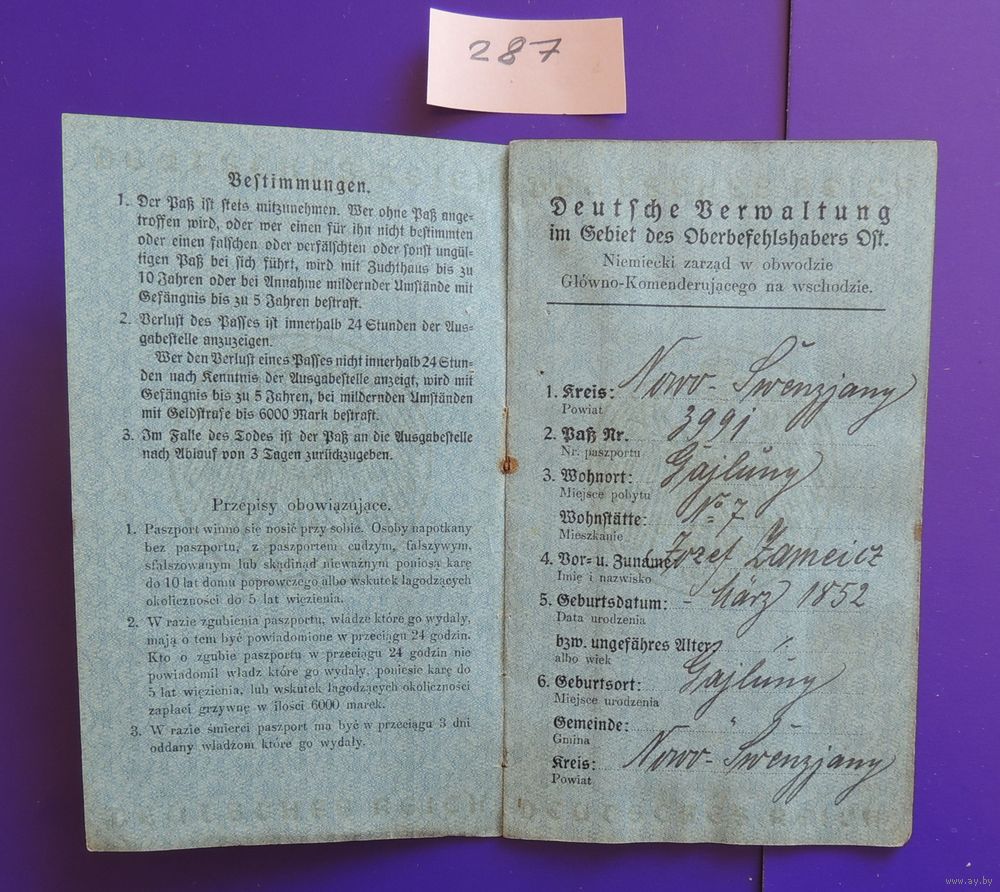 287
Bestimmungen.
1. Der Paß ist stets mitzunehmen. Wer ohne Paß ange-
troffen wird, oder wer einen für ihn nicht bestimmten
oder einen falschen oder verfälschten oder sonst ungül-
tigen Paß bei sich führt, wird mit Zuchthaus bis zu
10 Jahren oder bei Annahme mildernder Umstände mit
Gefängnis bis zu 5 Jahren bestraft.
2. Verlust des Passes ist innerhalb 24 Stunden der Aus-
gabestelle anzuzeigen.
Wer den Verlust eines Passes nicht innerhalb 24 Stun-
den nach Kenntnis der Ausgabestelle anzeigt, wird mit
Gefängnis bis zu 5 Jahren, bei mildernden Umständen
mit Geldstrafe bis zu 6000 Mark bestraft.
3. Im Falle des Todes ist der Paß an die Ausgabestelle
nach Ablauf von 3 Tagen zurückzugeben.
Przepisy obowiązujące.
1. Paszport winno się nosić przy sobie. Osoby napotkany
bez paszportu, z paszportem cudzym, falszywym,
sfalszowanym lub skądinąd nieważnym poniosą karę
do 10 lat domu poprowczego albo wskutek łagodzących
okoliczności do 5 lat więzienia.
2. W razie zgubienia paszportu, władze które go wydały,
mają o tem być powiadomione w przeciągu 24 godzin.
Kto o zgubie paszportu w przeciągu 24 godzin nie
powiadomil władz które go wydały, poniesie karę do
5 lat więzienia, lub wskutek łagodzących okoliczności
zapłaci grzywnę w ilości 6000 marek.
3. W razie śmierci paszport ma być w przeciągu 3 dni
oddany władzom które go wydały.
DEUTSCHES REICH
Deutsche Verwaltung
im Gebiet des Oberbefehlshabers Ost.
Niemiecki zarząd w obwodzie
Główno-Komenderującego na wschodzie.
1. Kreis: Nowo-Swenzjany
Powiat
2. Paß Nr. 3991
Nr. paszportu
3. Wohnort: Gajluny
Miejsce pobytu
Wohnstätte: No 7
Mieszkanie
4. Vor- u. Zuname: Jozef Zameicz
Imię i nazwisko
5. Geburtsdatum: - März 1852
Data urodzenia
bzw. ungefähres Alter
albo wiek
6. Geburtsort: Gajluny
Miejsce urodzenia
Gemeinde: "
Gmina
Kreis: Nowo-Swenzjany
Powiat
DEUTSCHES REICH
www.ay.by